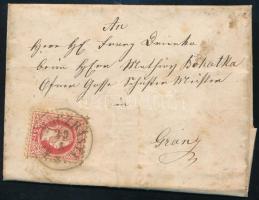 An
Herr Hl Franz Drinka
beim Herrn Mathias Bekatka
Ofner Gasse Schuster Meister
in
Grany